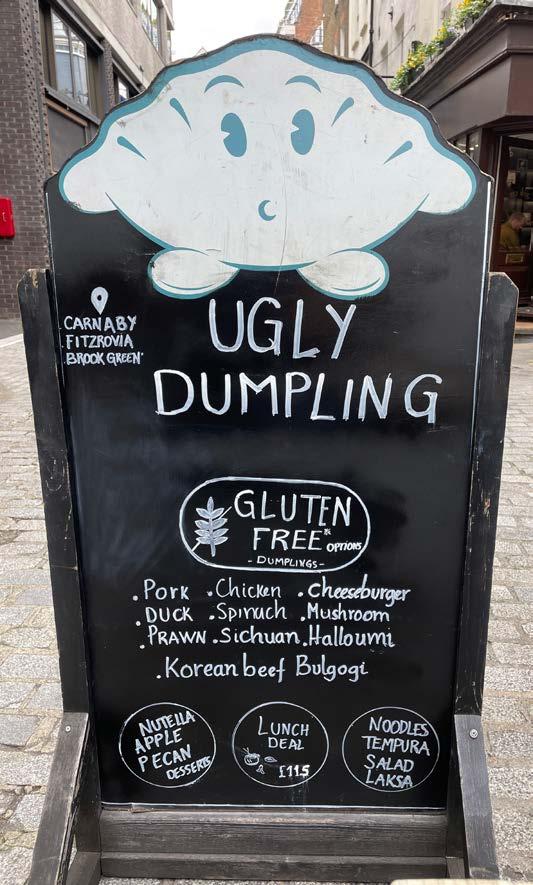 CARNABY
FITZROVIA
BROOK GREEN
UGLY
DUMPLING
GLUTEN
FREE* OPTIONS
- DUMPLINGS -
. Pork . Chicken . Cheeseburger
. DUCK . Spinach . Mushroom
. PRAWN . Sichuan . Halloumi
. Korean beef Bulgogi
NUTELLA
APPLE
PECAN
DESSERTS
LUNCH
DEAL
£11.5
NOODLES
TEMPURA
SALAD
LAKSA